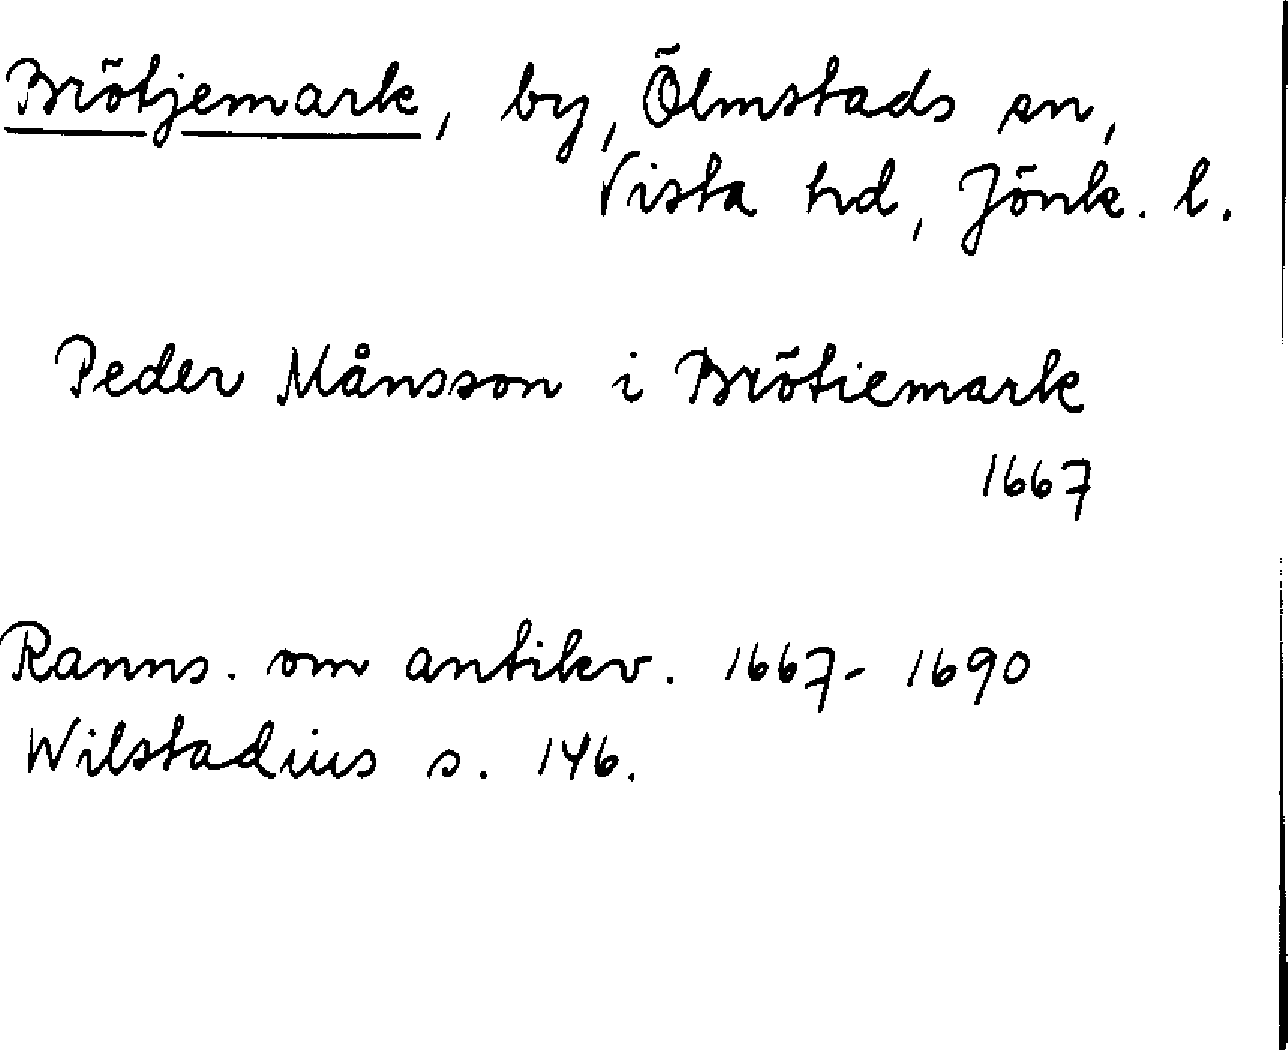 Brötjemark, by, Ölmstads sn,
Vista hd, Jönk. l.
Peder Månsson i Brötiemark
1667
Ranns. om antikv. 1667-1690
Wilstadius s. 146.